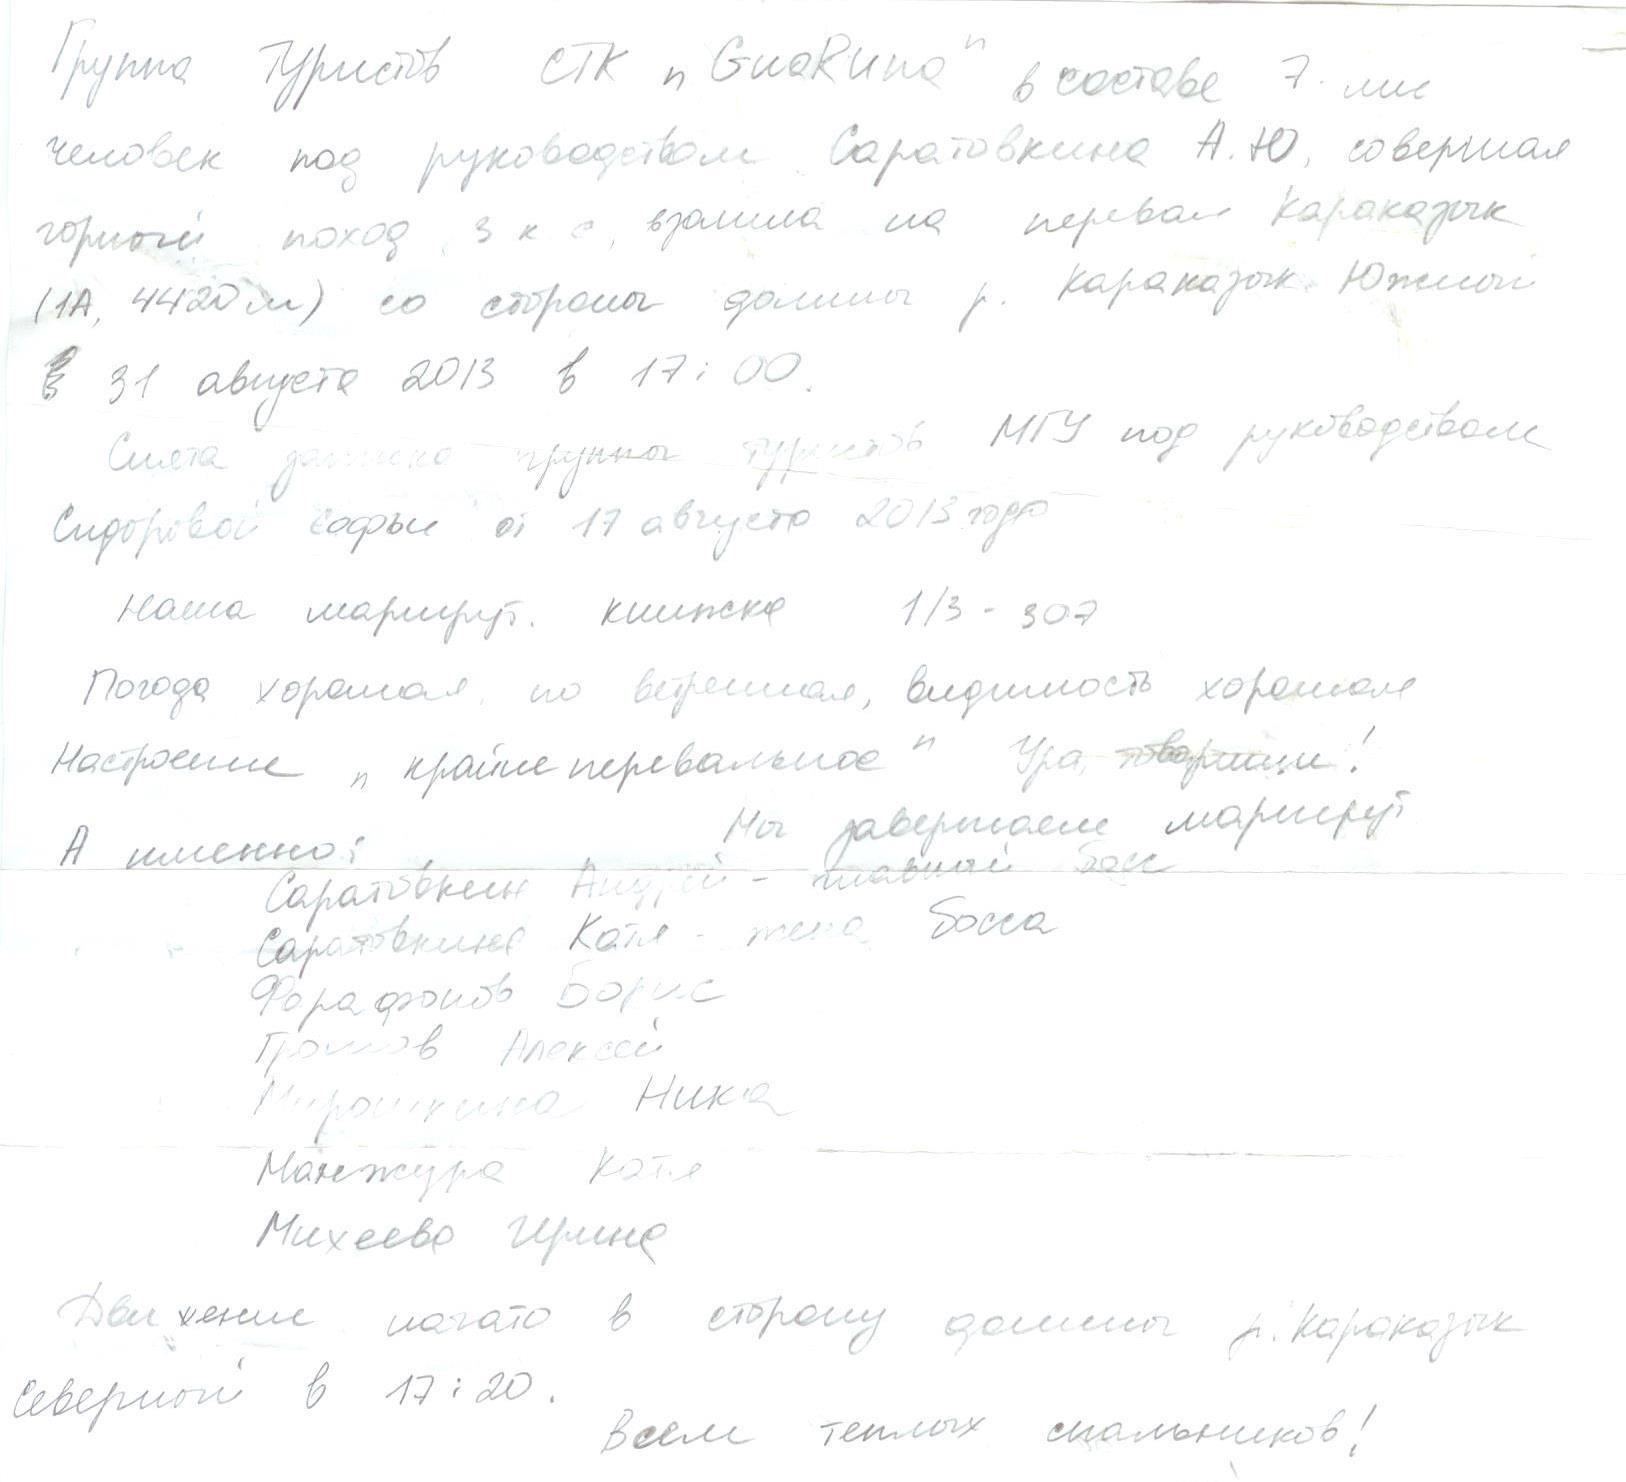 Группа туристов СТК "GuaRuna" в составе 7-ми
человек под руководством Саратовкина А.Ю, совершая
горный поход 3 к с, взошла на перевал Караказык
(1А, 4420 м) со стороны долины р. Караказык Южный
В 31 августа 2013 в 17:00.
Снята записка группы туристов МГУ под руководством
Сидоровой Софьи от 17 августа 2013 года
Наша маршрут. книжка 1/3-307
Погода хорошая, но ветренная, видимость хорошая
Настроение "крайнеперевальное" Ура, товарищи!
Мы завершаем маршрут
А именно:
Саратовкин Андрей - главный босс
Саратовкина Катя - жена босса
Фарафонов Борис
Громов Алексей
Мирошкина Ника
Манжура Катя
Михеева Ирина
Движение начато в сторону долины р. Караказык
Северный в 17:20.
Всем теплых спальников!